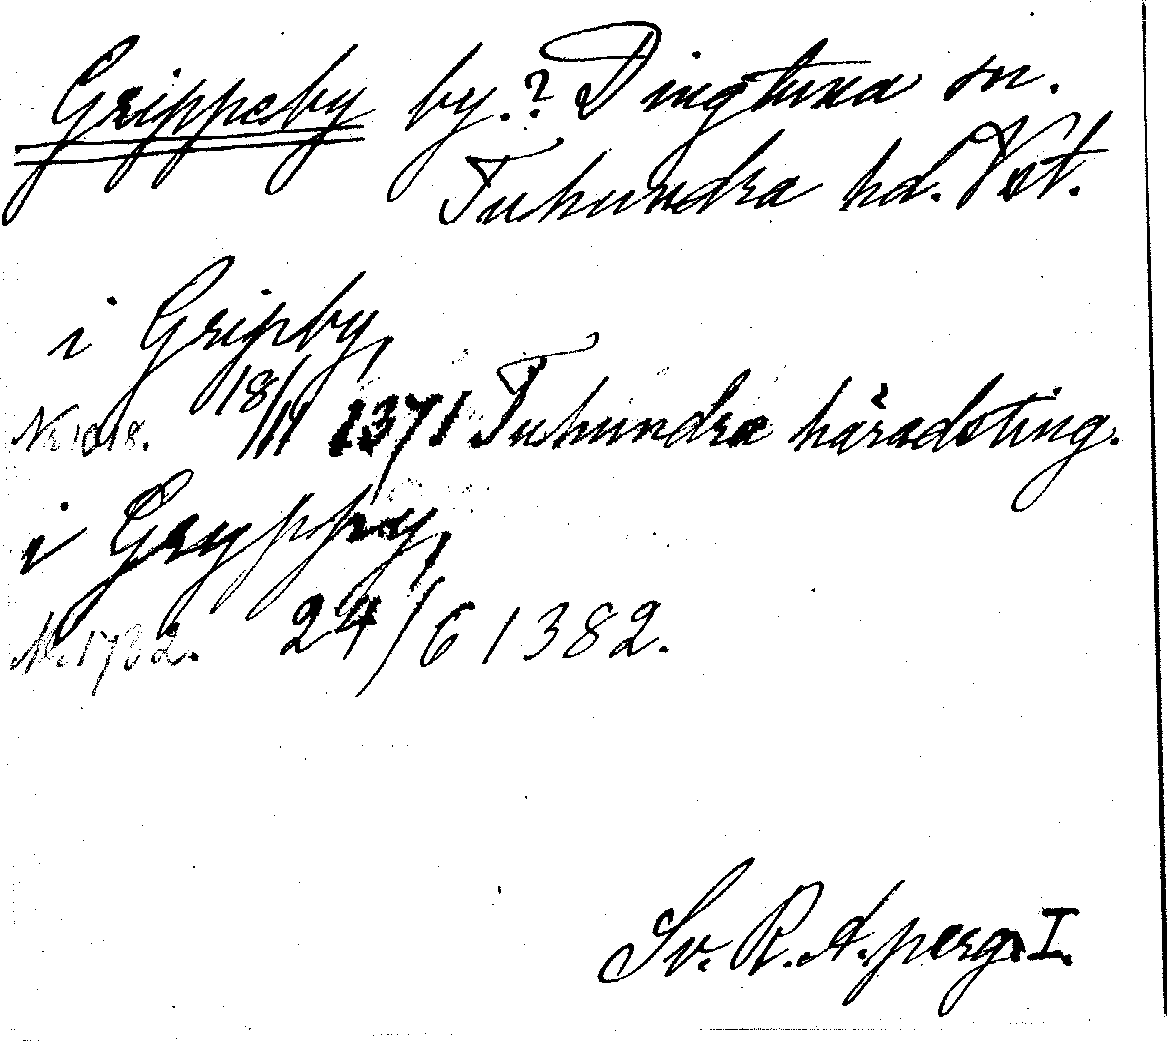 Grippeby by.? Dingtuna sn.
Tuhundra hd. Vst.
i Gripby,
Nr 1018. 18/11 1371 Tuhundra häradsting.
i Gryppby,
Nr. 1732. 24/6 1382.
Sv. R. A. perg. I.